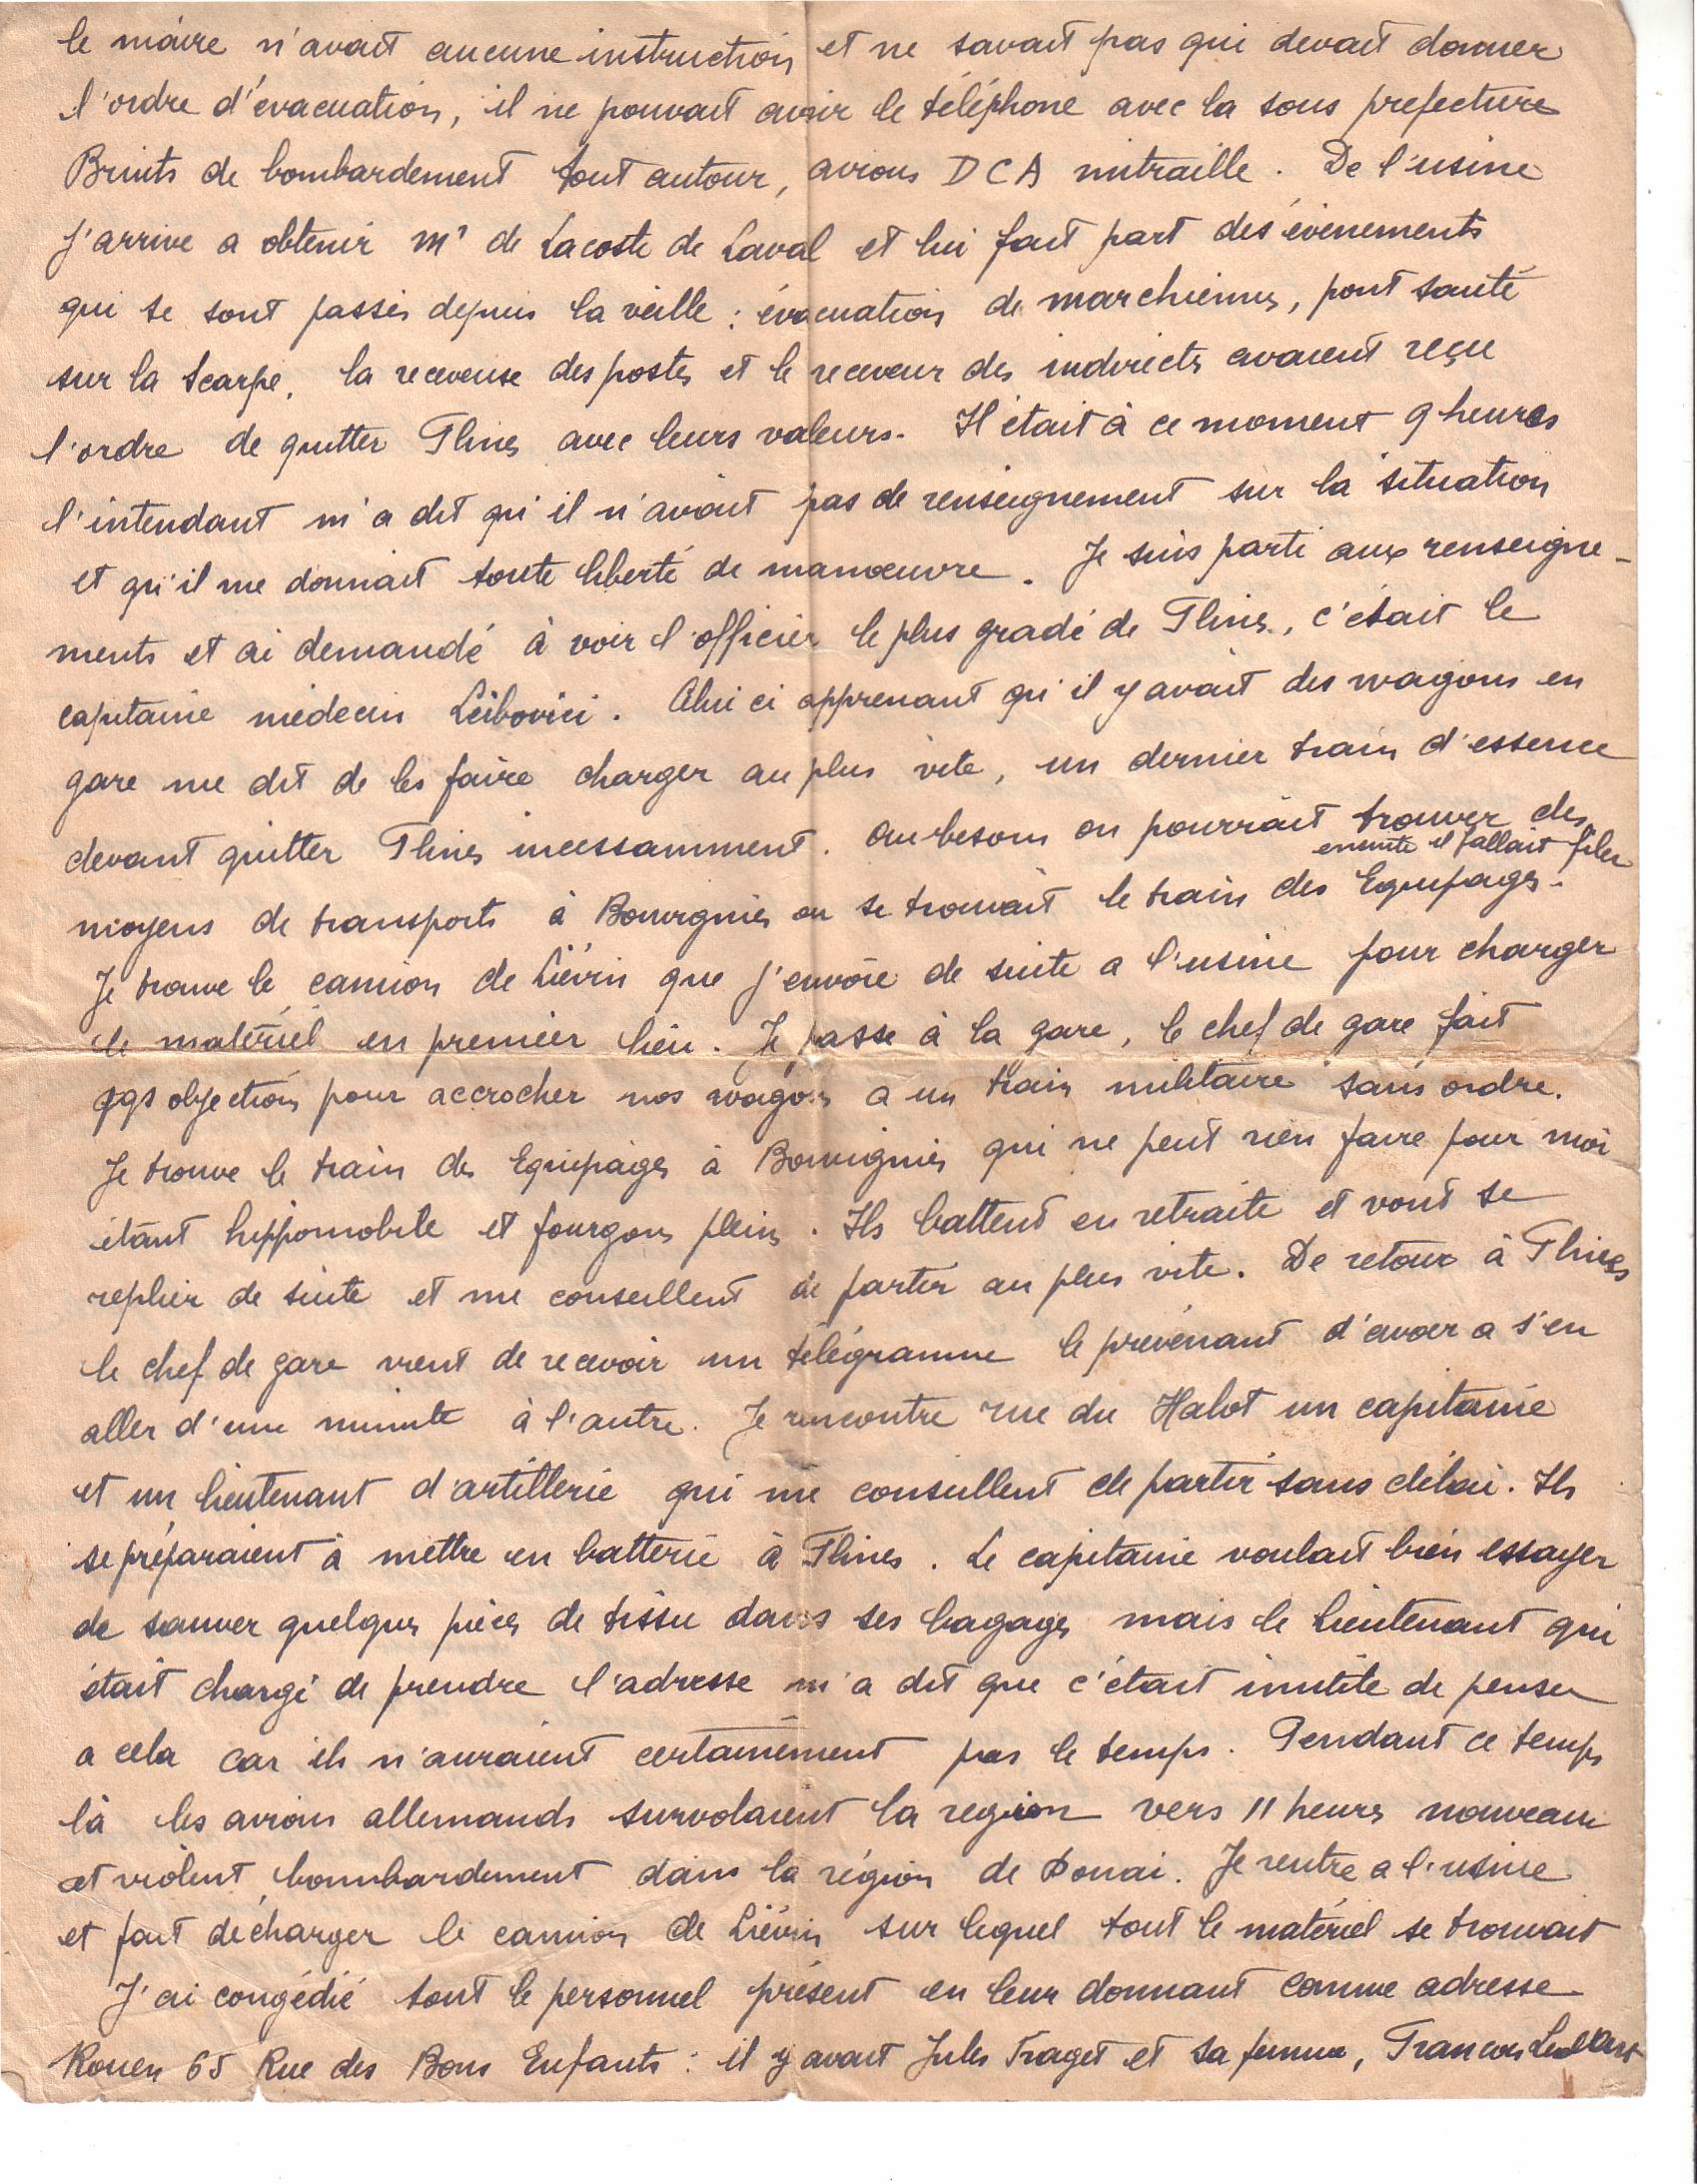 le maire n'avait aucune instruction et ne savait pas qui devait donner
l'ordre d'évacuation, il ne pouvait avoir le téléphone avec la sous prefecture
Bruits de bombardement tout autour, avions DCA mitraille. De l'usine
J'arrive a obtenir Mr de Lacoste de Laval et lui fait part des évenements
qui se sont passés depuis la veille : évacuation de Marchiennes, pont sauté
sur la Scarpe, la receveuse des postes et le receveur des indirects avaient reçu
l'ordre de quitter Flines avec leurs valeurs. Il était à ce moment 9 heures
l'intendant m'a dit qu'il n'avait pas de renseignement sur la situation
et qu'il me donnait toute liberté de manœuvre. Je suis parti aux renseigne-
ments et ai demandé à voir l'officier le plus gradé de Flines, c'était le
capitaine médecin Leibovici. Celui ci apprenant qu'il y avait des wagons en
gare me dit de les faire charger au plus vite, un dernier train d'essence
devant quitter Flines incessamment. Au besoin on pourrait trouver des
ensuite il fallait filer
moyens de transports à Bouvignies ou se trouvait le train des Equipages.
Je trouve le camion de Liévin que j'envoie de suite a l'usine pour charger
le matériel en premier lieu. Je passe à la gare, le chef de gare fait
qqs objections pour accrocher nos wagons a un train militaire sans ordre.
Je trouve le train des Equipages à Bouvignies qui ne peut rien faire pour moi
étant hippomobile et fourgons pleins. Ils battent en retraite et vont se
replier de suite et me conseillent de partir au plus vite. De retour à Flines
le chef de gare vient de recevoir un télégramme le prévenant d'avoir a s'en
aller d'une minute à l'autre. Je rencontre rue du Halot un capitaine
et un lieutenant d'artillerie qui me conseillent de partir sans délai. Ils
se préparaient à mettre en batterie à Flines. Le capitaine voulait bien essayer
de sauver quelques pièces de tissu dans ses bagages mais le lieutenant qui
était chargé de prendre l'adresse m'a dit que c'était inutile de penser
a cela car ils n'auraient certainement pas le temps. Pendant ce temps
là les avions allemands survolaient la region vers 11 heures nouveau
et violent bombardement dans la région de Douai. Je rentre a l'usine
et fait décharger le camion de Liévin sur lequel tout le matériel se trouvait
J'ai congédié tout le personnel présent en leur donnant comme adresse
Rouen 65 Rue des Bons Enfants : il y avait Jules Fraget et sa femme, Francois